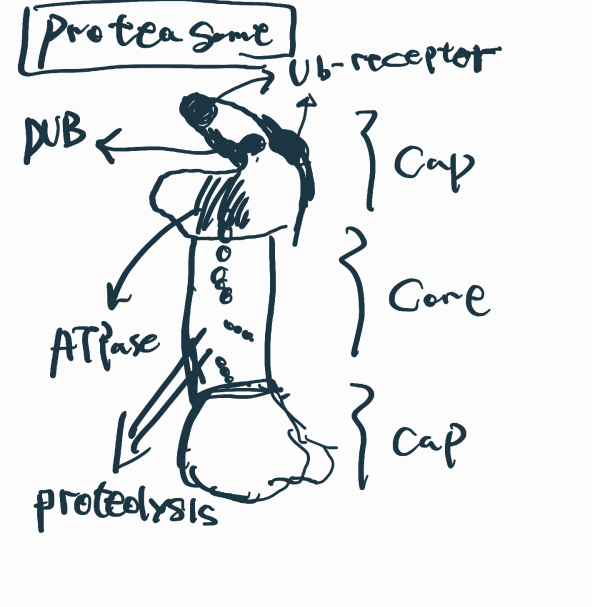 Proteasome
Ub-receptor
DUB
Cap
Core
ATPase
Cap
proteolysis